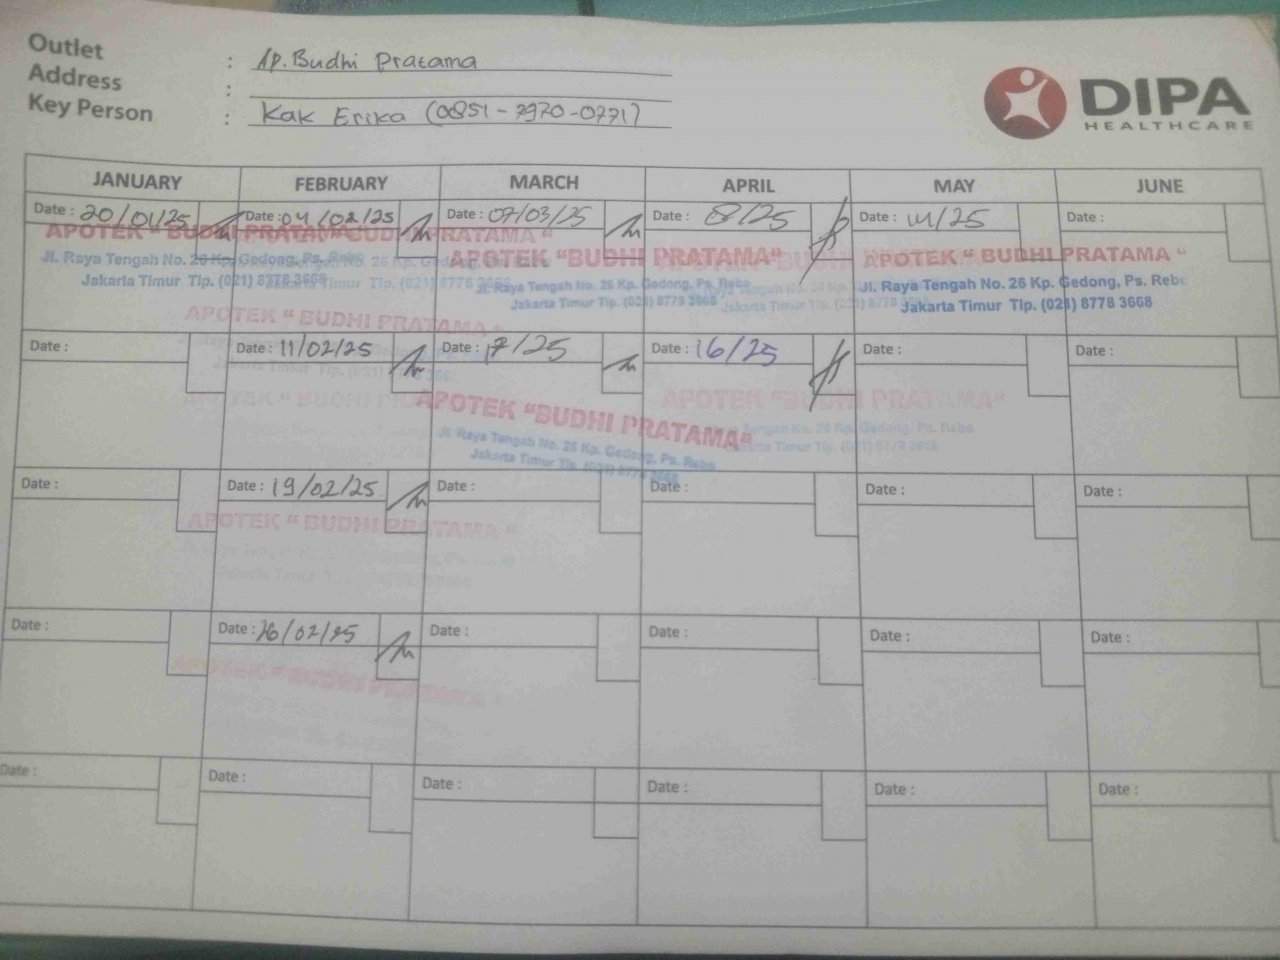 Outlet : Ap. Budhi Pratama
Address :
Key Person : Kak Erika (0851-7970-0771)
DIPA
HEALTHCARE
JANUARY FEBRUARY MARCH APRIL MAY JUNE
Date : 20/01/25 Date : 04/02/25 Date : 07/03/25 Date : 8/25 Date : Date :
APOTEK " BUDHI PRATAMA APOTEK "BUDHI PRATAMA" APOTEK " BUDHI PRATAMA "
Jl. Raya Tengah No. 26 Kp. Gedong, Ps. Rebo Jl. Raya Tengah No. 26 Kp. Gedong, Ps. Rebo Jl. Raya Tengah No. 26 Kp. Gedong, Ps. Rebo
Jakarta Timur Tlp. (021) 8778 3668 Jakarta Timur Tlp. (021) 8778 3668 Jakarta Timur Tlp. (021) 8778 3668
APOTEK " BUDHI PRATAMA
Date : Date : 11/02/25 Date : 17/25 Date : 16/25 Date : Date :
APOTEK "BUDHI PRATAMA" APOTEK "BUDHI PRATAMA"
Jl. Raya Tengah No. 26 Kp. Gedong, Ps. Rebo
Jakarta Timur Tlp. (021) 8778 3668
Date : Date : 19/02/25 Date : Date : Date : Date :
APOTEK " BUDHI PRATAMA "
Date : Date : 26/02/25 Date : Date : Date : Date :
APOTEK " BUDHI PRATAMA
Date : Date : Date : Date : Date : Date :